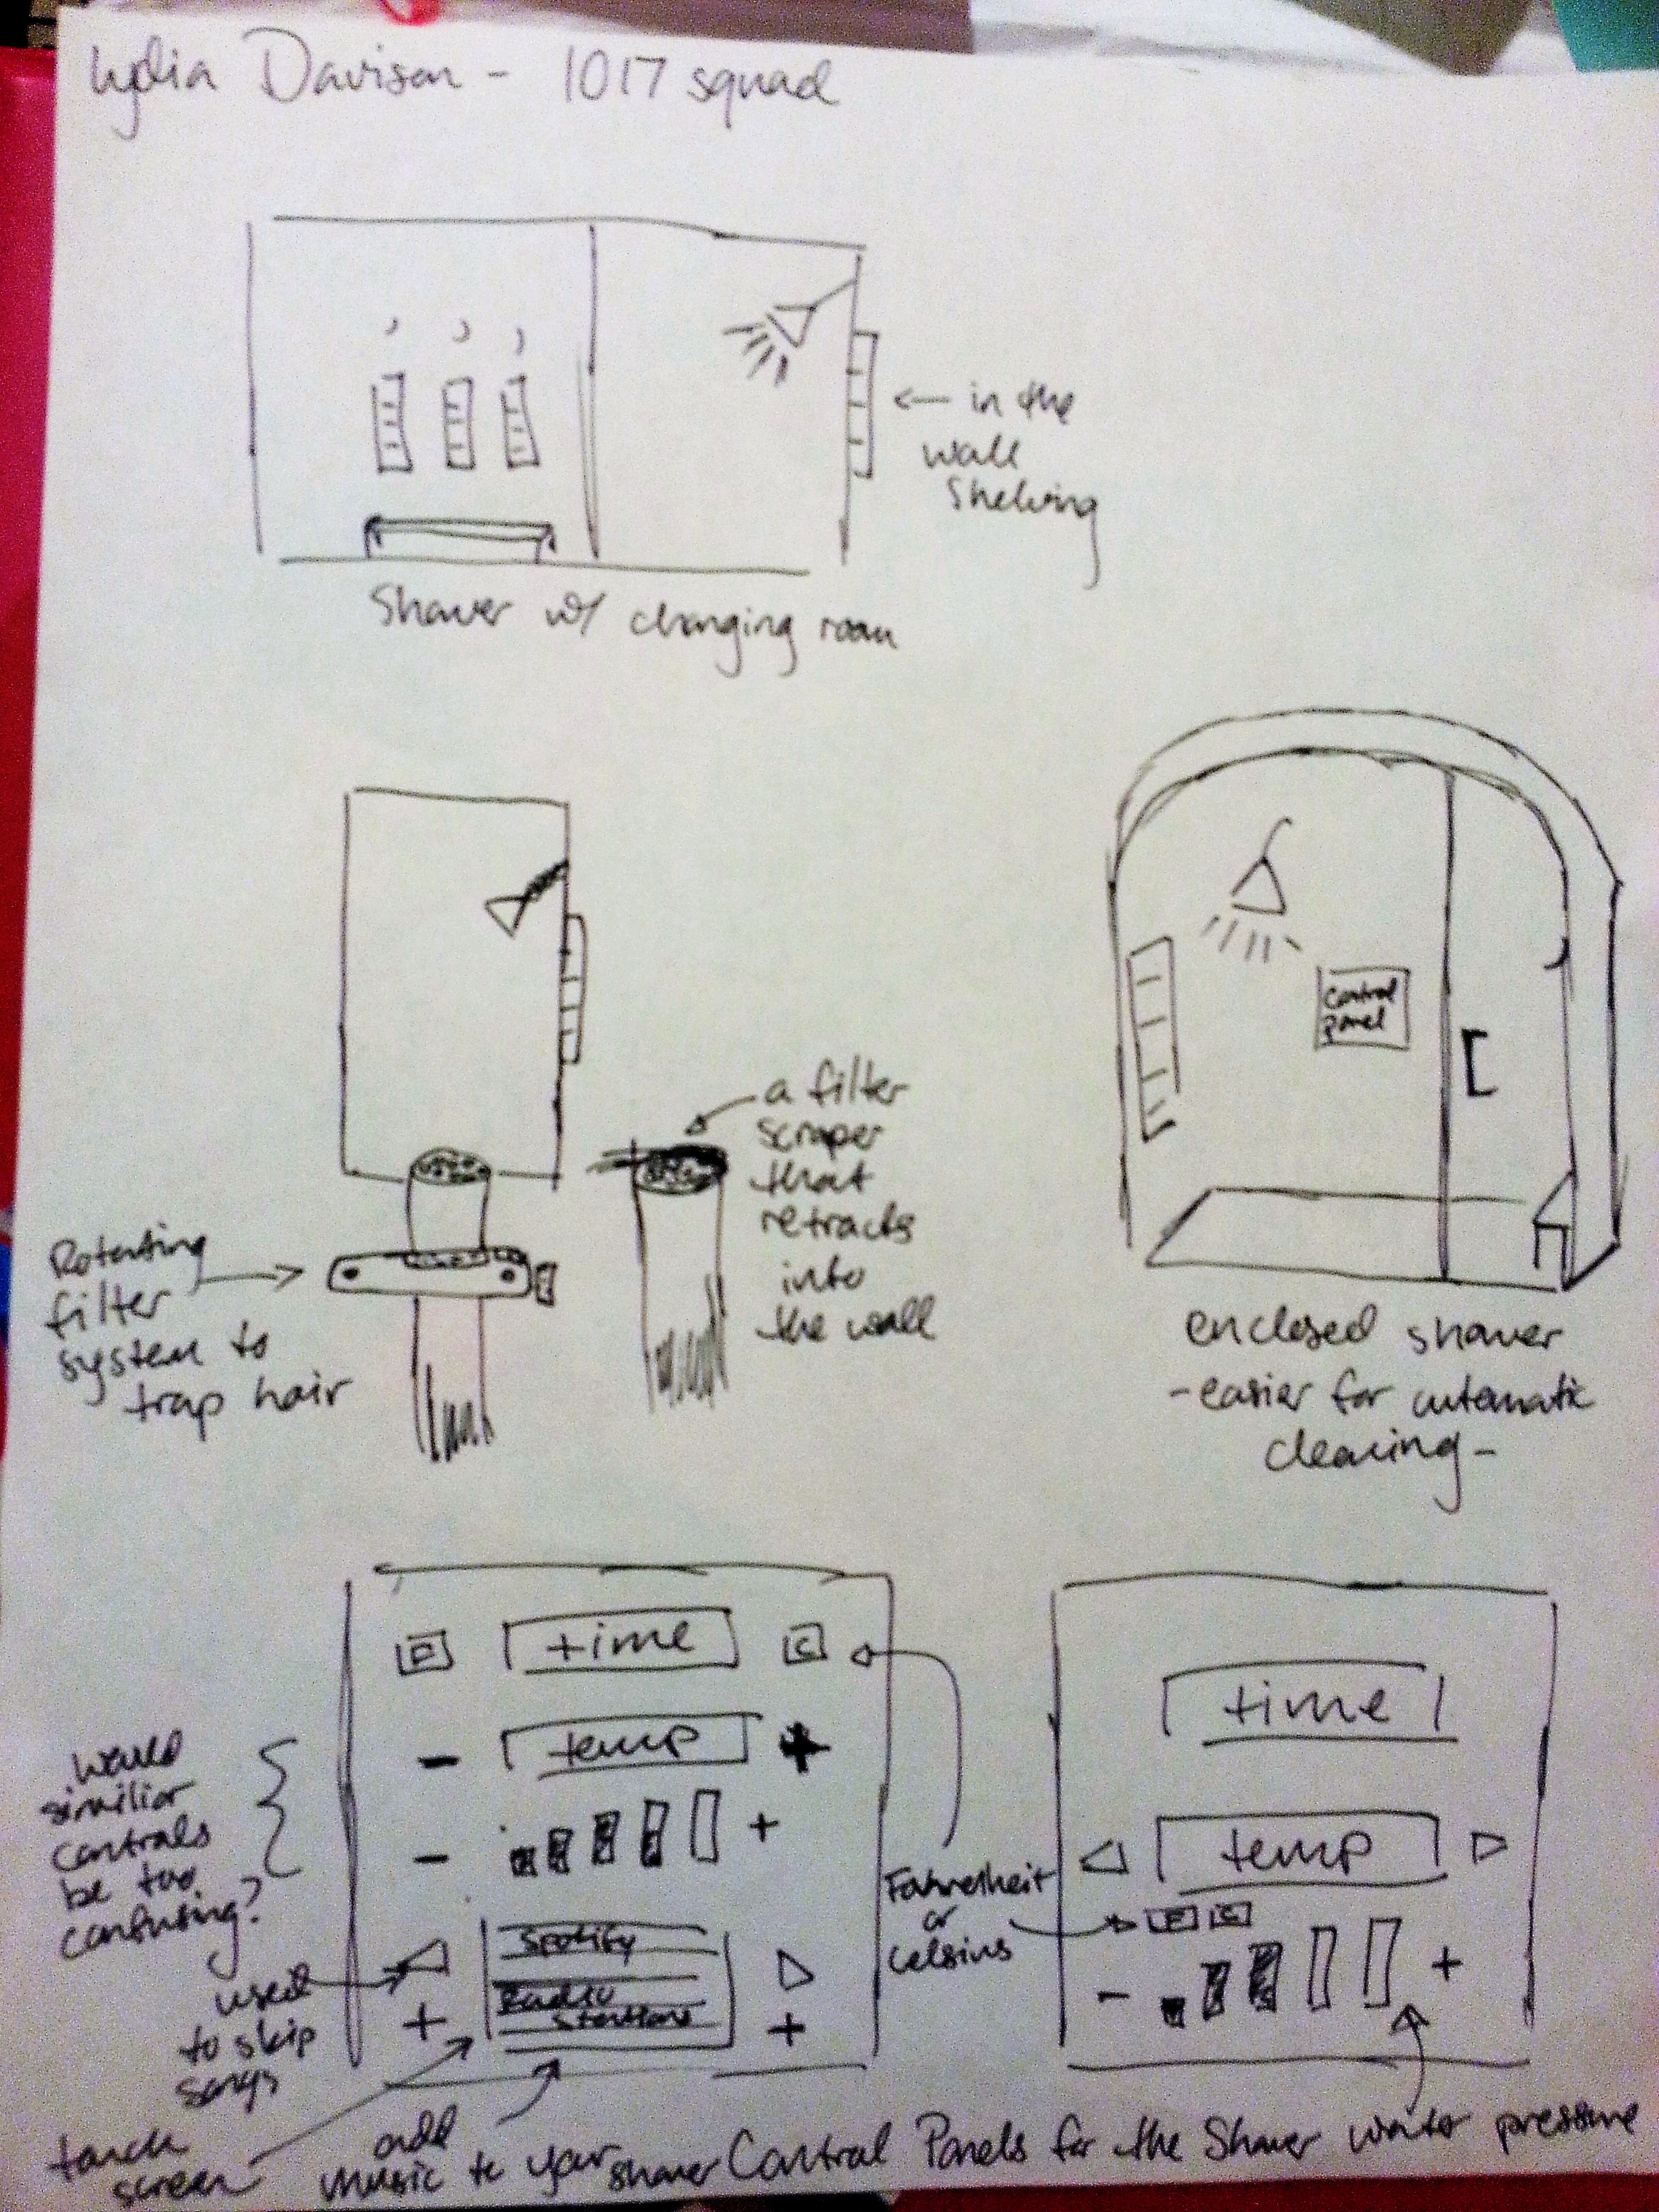 Lydia Davison - 1017 squad
← in the
wall
Shelving
Shower w/ changing room
control
panel
a filter
scraper
that
retracts
into
the wall
Rotating
filter
system to
trap hair
enclosed shower
-easier for automatic
cleaning-
F time C
- temp +
- +
would
similiar
controls
be too
confusing?
Spotify
Radio
Stations
+ +
used
to skip
songs
touch
screen
add
music to your shower
Fahrenheit
or
Celsius
time
temp
F C
- +
Control Panels for the Shower
water pressure